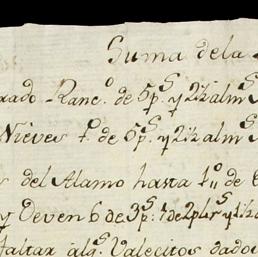 Suma dela
rado Ranc.º de 5p.s y 2½ alm.s
Nieves t.º de 5p.s y 2½ alm.s
del Alamo hasta 1º de
y Deven 6 de 3p.s
faltar alg.s Valecitos dados